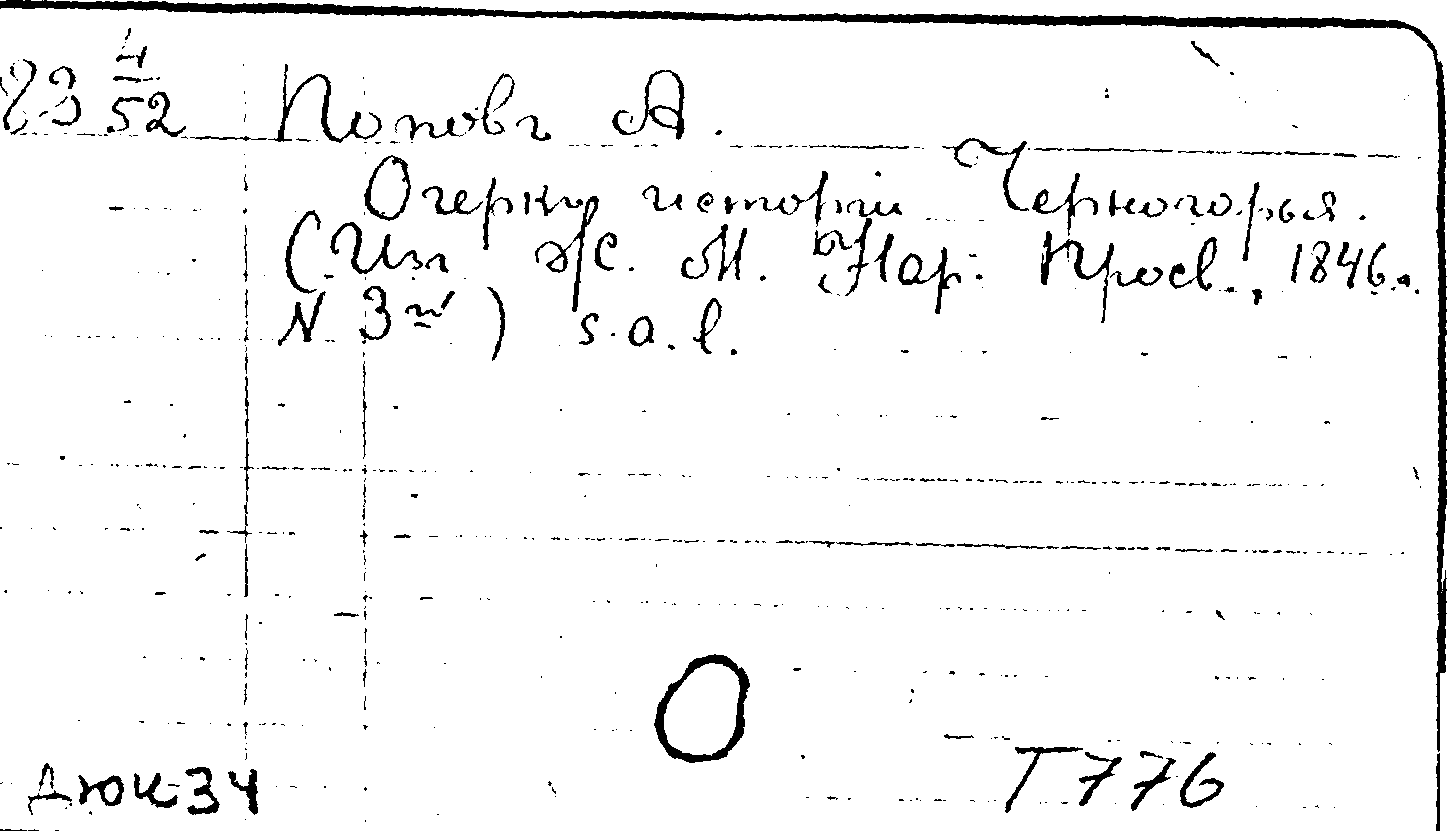 23 4/52 Поповъ А.
Очеркъ исторіи Черногорья.
(Изъ Ж. М. Нар. Просв., 1846 г.
N 3й) s.a.l.
ДЮК34
Т776